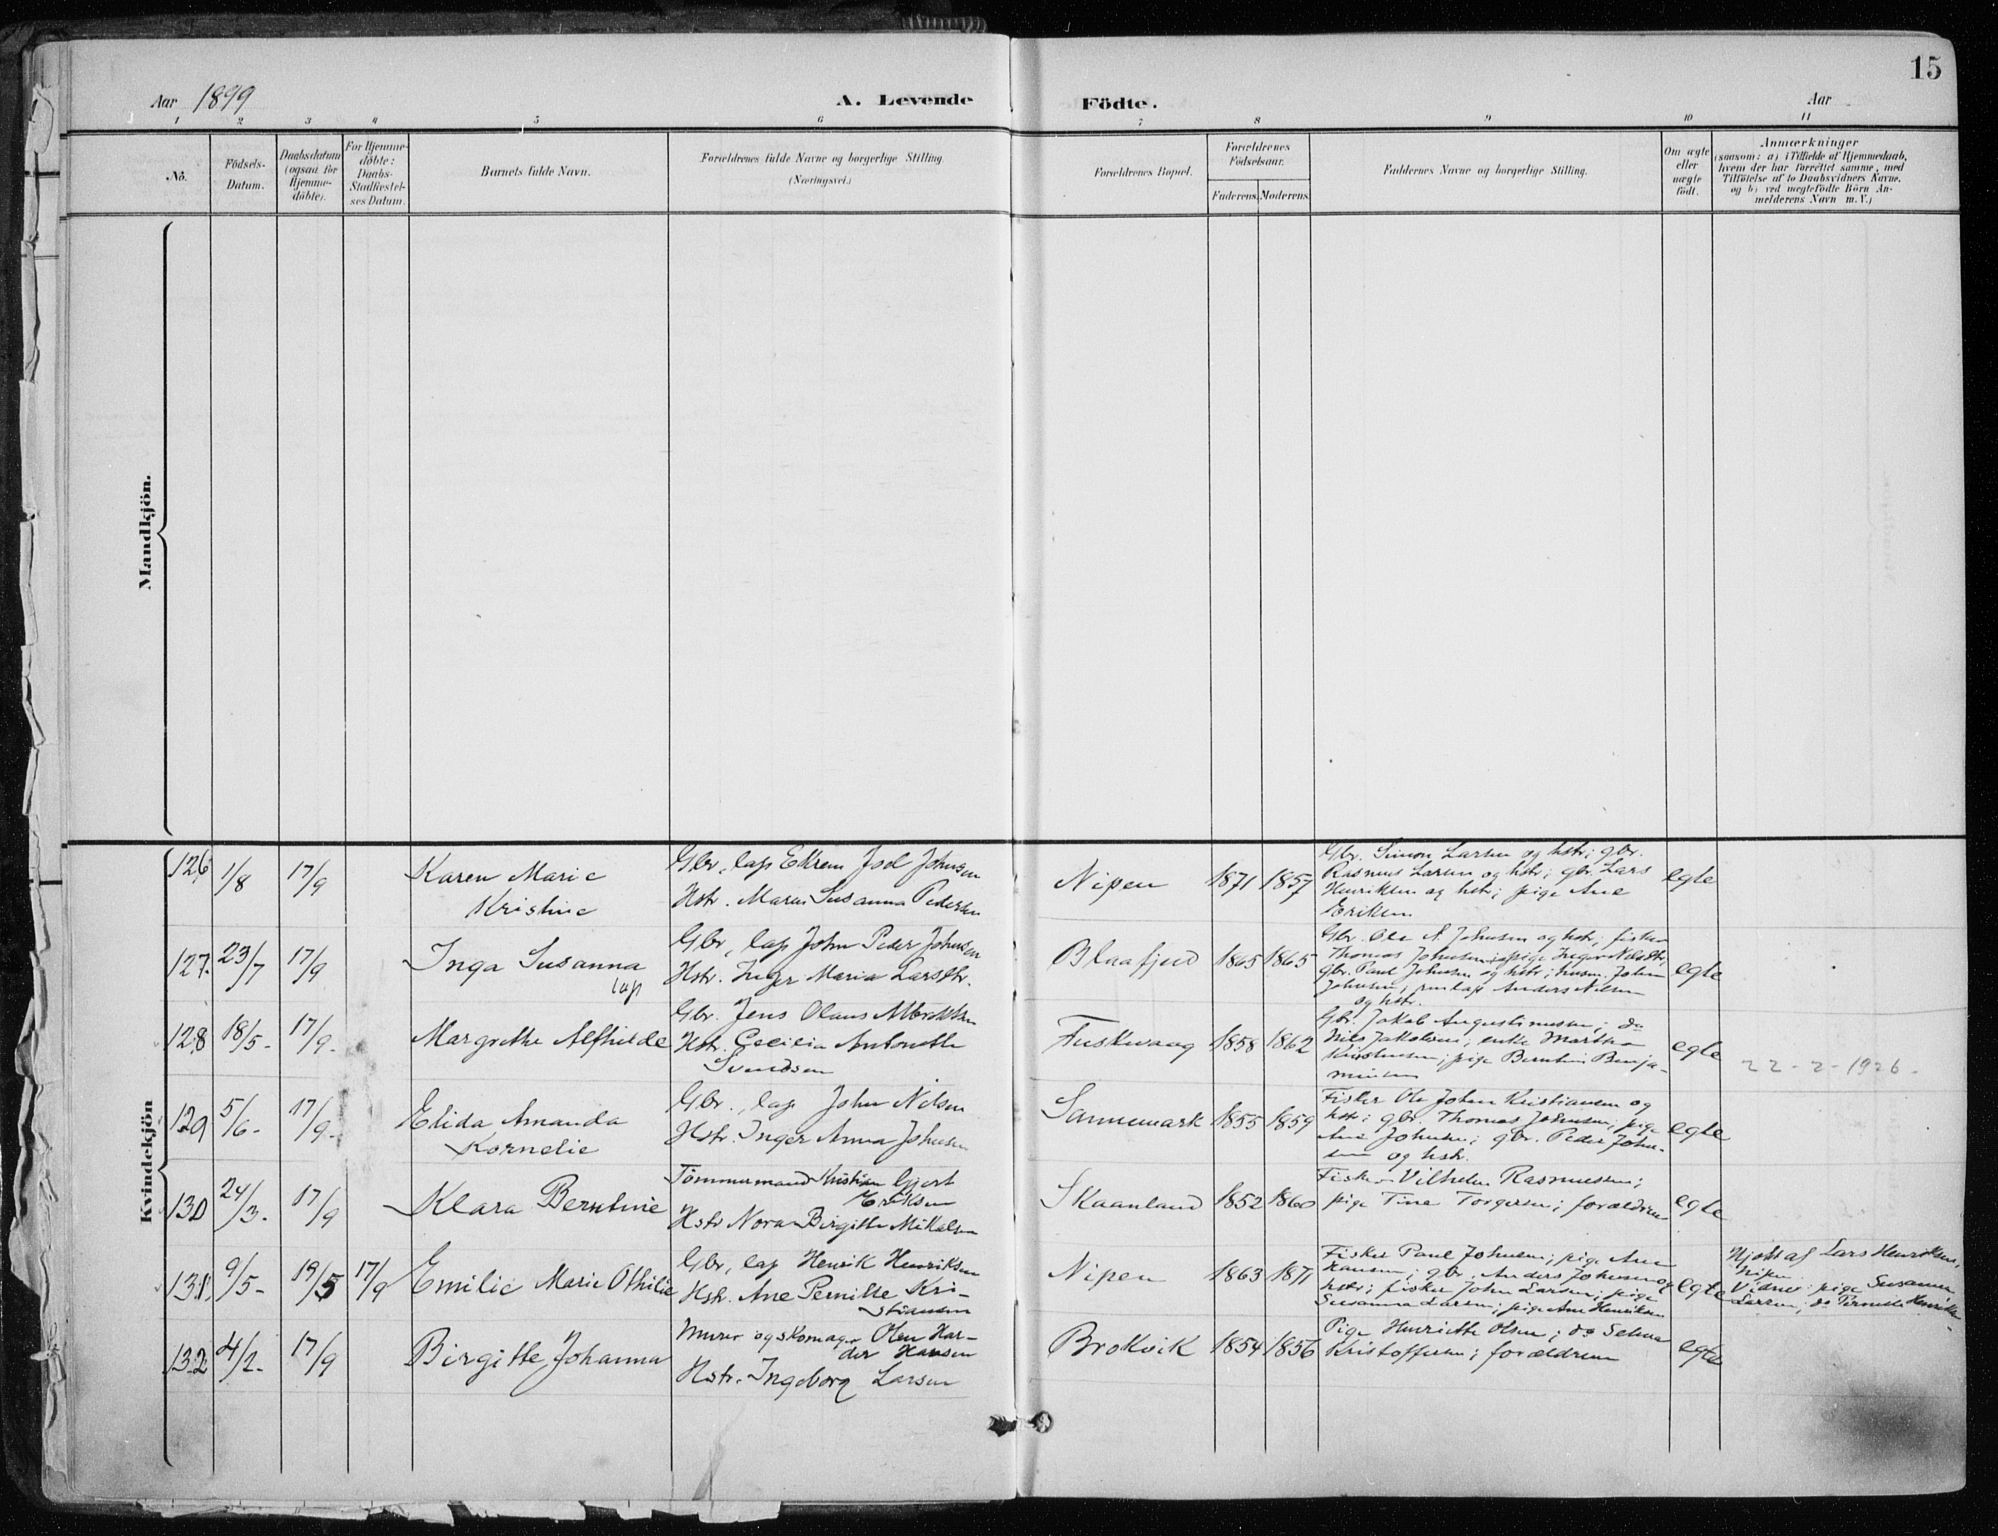 15
Aar 1899
A. Levende
Födte.
Aar
1 2 3 4 5 6 7 8 9 10 11
No.
Födsels-Datum.
Daabsdatum (ogsaa for Hjemme-døbte).
For Hjemme-døbte: Daabs-Stadfæstel-ses Datum.
Barnets fulde Navn.
Forældrenes fulde Navne og borgerlige Stilling
(Næringsvei.)
Forældrenes Bopæl.
Forældrenes Födselsaar.
Faderens. Moderens.
Faddernes Navne og borgerlige Stilling.
Om ægte eller uægte födt.
Anmærkninger
(saasom: a) i Tilfælde af Hjemmedaab,
hvem der har forrettet samme, med
Tilföielse af to Daabsvidners Navne,
og b) ved uægtefödte Börn An-
melderens Navn m. V.)
Mandkjön.
Kvindekjön
126 1/8 17/9 Karen Marie
Kristine
Gbr, lap Ekrem Jsol Johnsen
Hstr. Maren Susanna Pedersen
Nipen 1871 1857
Gbr. Simon Larsen og hstr; gbr.
Rasmus Larsen og hstr; gbr. Lars
Henriksen og hstr; pige Ane
Eriksen
egte
127. 23/7 17/9 Inga Susanna
lap
Gbr, lap John Peder Johnsen
Hstr. Inger Maria Larsdtr.
Blaafjeld 1865 1865
Gbr. Ole N. Johnsen og hstr, fisker
Thomas Johnsen, pige Inger Nilsdtr,
gbr. Paul Johnsen og hstr; husm. John
Johnsen; Anders Nilsen
og hstr.
egte
128 18/5- 17/9- Margrethe Alfhilde
Gbr. Jens Olaus Albrektsen
Hstr. Cecilia Antonette
Svendsen
Fuskevaag 1858 1862
Gbr. Jakob Augustinussen; do
Nils Jakobsen, enke Martha
Kristensen; pige Berntine Benja-
minsen
egte
22-2-1926.
129 5/6- 17/9- Elida Amanda
Kornelie
Gbr., lap John Nilsen
Hstr. Inger Anna Johnsen
Sannemark 1855 1859
Fisker Ole Johan Kristiansen og
hstr; gbr. Thomas Johnsen, pige
Ane Johnsen; gbr. Peder John-
sen og hstr.
egte
130 24/3. 17/9 Klara Berntine
Tömmermand Kristian Gjert
Eriksen
Hstr Nora Birgitte Mikalsen
Skaanland 1852 1860
Fisker Vilhelm Rasmussen;
pige Tine Torgersen; forældrene
egte
131, 9/5- 19/5 17/9 Emilie Marie Othilie
Gbr, lap Henrik Henriksen
Hstr. Ane Pernille Kri-
stiansen
Nipen 1863 1871
Fisker Paul Johnsen; pige Ane
Hansen; gbr. Anders Johnsen og
hstr; fisker John Larsen; pige
Susanna Larsen; pige Ane Henriksen
egte
Hjdt af Lars Henriksen,
Nipen
Vidner: pige Susanna
Larsen; do Pernille Henrik-
132 4/2- 17/9 Birgitte Johanna
Murer og skomager Olen Har-
der Hansen
Hstr. Ingeborg Larsen
Brokvik 1854 1856
Pige Henriette Olsen; do Selma
Kristoffersen; forældrene
egte